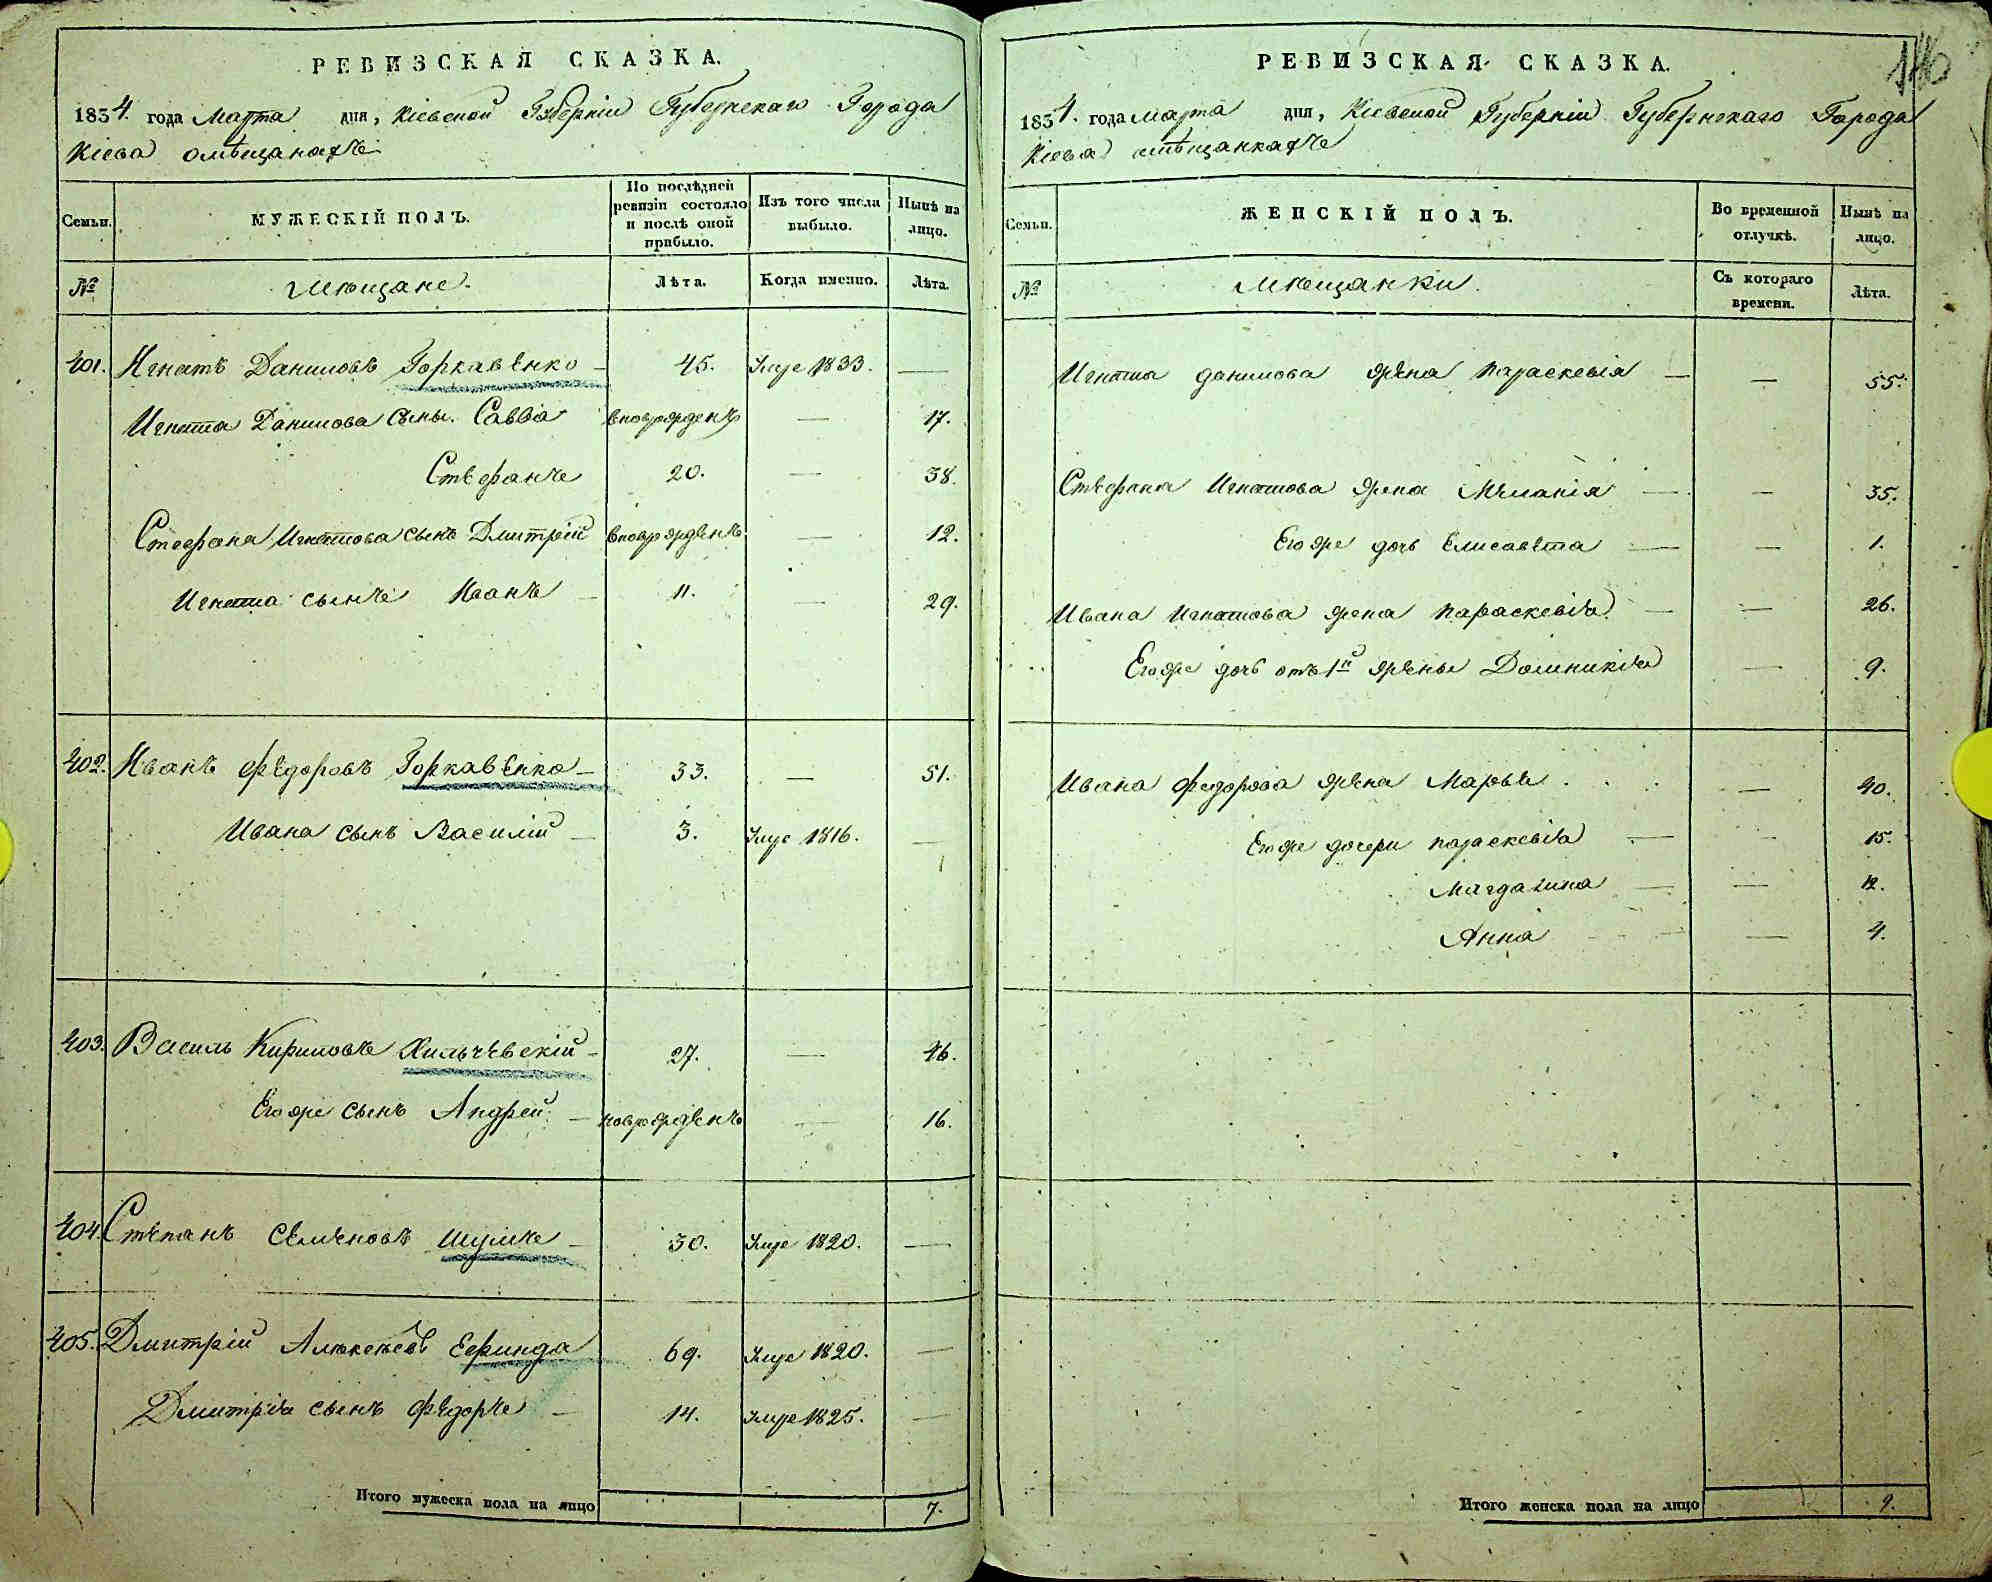 РЕВИЗСКАЯ СКАЗКА.
1834. года Марта дня, Кіевской Губерніи Губернскаго Города
Кіева о мѣщанахъ
Семьи. МУЖЕСКІЙ ПОЛЪ. По послѣдней ревизіи состояло и послѣ оной прибыло. Изъ того числа выбыло. Нынѣ на лицо.
№ Мѣщане. Лѣта. Когда именно. Лѣта.
401. Игнатъ Даниловъ Горкавенко 45. Умре 1833. —
Игната Данилова сыны. Савва вноврожденъ — 17.
Стефанъ 20. — 38.
Стефана Игнатова сынъ Дмитрій вноврожденъ — 12.
Игната сынъ Иванъ 11. — 29.
402. Иванъ Федоровъ Горкавенко 33. — 51.
Ивана сынъ Василій 3. Умре 1816. —
403. Василь Кириловъ Хильчевскій 27. — 46.
Егоже сынъ Андрей новрожденъ — 16.
404. Степанъ Семеновъ Шумъ 30. Умре 1820. —
405. Дмитрій Алексѣевъ Ефинда 69. Умре 1820. —
Дмитрія сынъ Федоръ 14. Умре 1825. —
Итого мужеска пола на лицо 7.
146
РЕВИЗСКАЯ СКАЗКА.
1834. года Марта дня, Кіевской Губерніи Губернскаго Города
Кіева о мѣщанкахъ
Семьи. ЖЕНСКІЙ ПОЛЪ. Во временной отлучкѣ. Нынѣ на лицо.
№ Мѣщанки. Съ котораго времени. Лѣта.
Игната Данилова жена Параскевія — 55.
Стефана Игнатова жена Меланія — 35.
Егоже дочь Елисавета — 1.
Ивана Игнатова жена Параскевія — 26.
Егоже дочь отъ 1й жены Доминикія — 9.
Ивана Федорова жена Марья — 40.
Егоже дочери Параскевія — 15.
Магдалина — 12.
Анна — 4.
Итого женска пола на лицо 9.